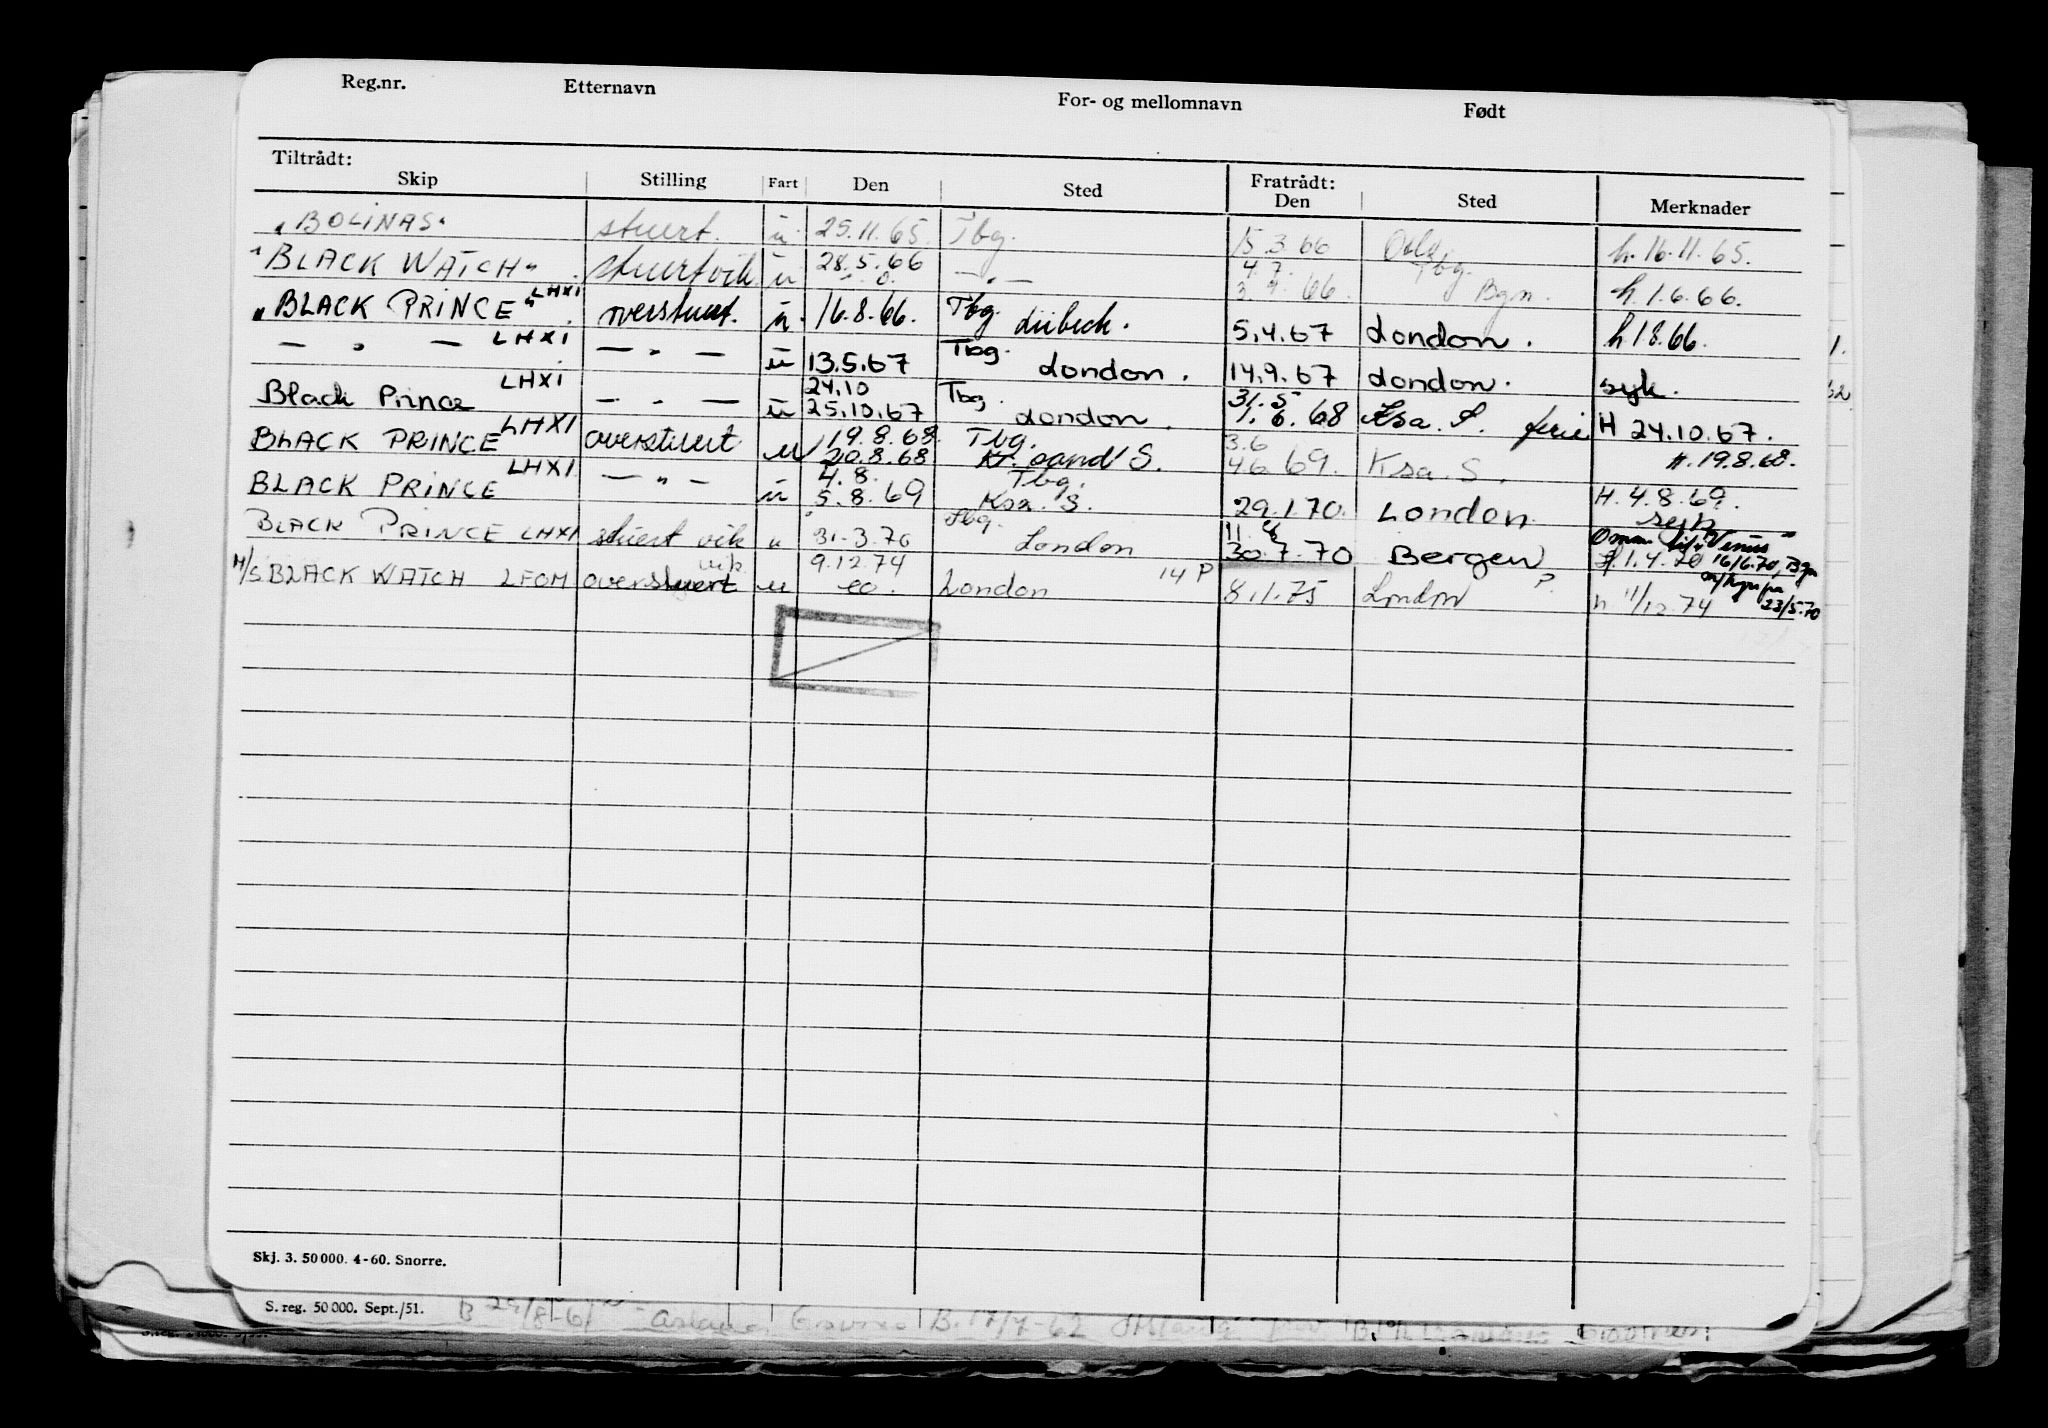 Reg.nr. Etternavn For- og mellomnavn Født
Tiltrådt: Fratrådt:
Skip Stilling Fart Den Sted Den Sted Merknader
"BOLINAS" stuert. u 25.11.65. Tbg. 15.3.66 Oslo h. 16.11.65.
"BLACK WATCH" stuertvik u 28.5.66 — " — 4.7. Tbg.
3.7.66. Bgn. h. 1.6.66.
"BLACK PRINCE" LHXI overstuert. u 16.8.66. Tbg. Lübeck. 5.4.67 London. h 1.8.66.
— " — LHXI — " — u 13.5.67 Tbg. London. 14.9.67 London. syk.
Black Prince LHXI — " — u 24.10 Tbg. 31.5
25.10.67 London. 1.6.68 Ksa. S. ferie H 24.10.67.
BLACK PRINCE LHXI overstuert u 19.8.68. Tbg. 3.6
20.8.68 Kr.sand S. 4.6.69. Ksa S. H. 19.8.68.
BLACK PRINCE LHXI — " — u 4.8. Tbg.
5.8.69 Ksa. S. 29.1.70. London H. 4.8.69.
syk
BLACK PRINCE LHXI stuert vik u 31.3.70 Tbg. London 11.
30.7.70 Bergen "Venus"
1.4.70 16/6.70, Bgn
23/5.70
M/S BLACK WATCH LFOM overstuert vik u 9.12.74
eo. London 14 P 8.1.75 London P. h. 11/12.74
Skj. 3. 50 000. 4-60. Snorre.
S. reg. 50 000. Sept./51. B 29/8-61 B. 17/7-62